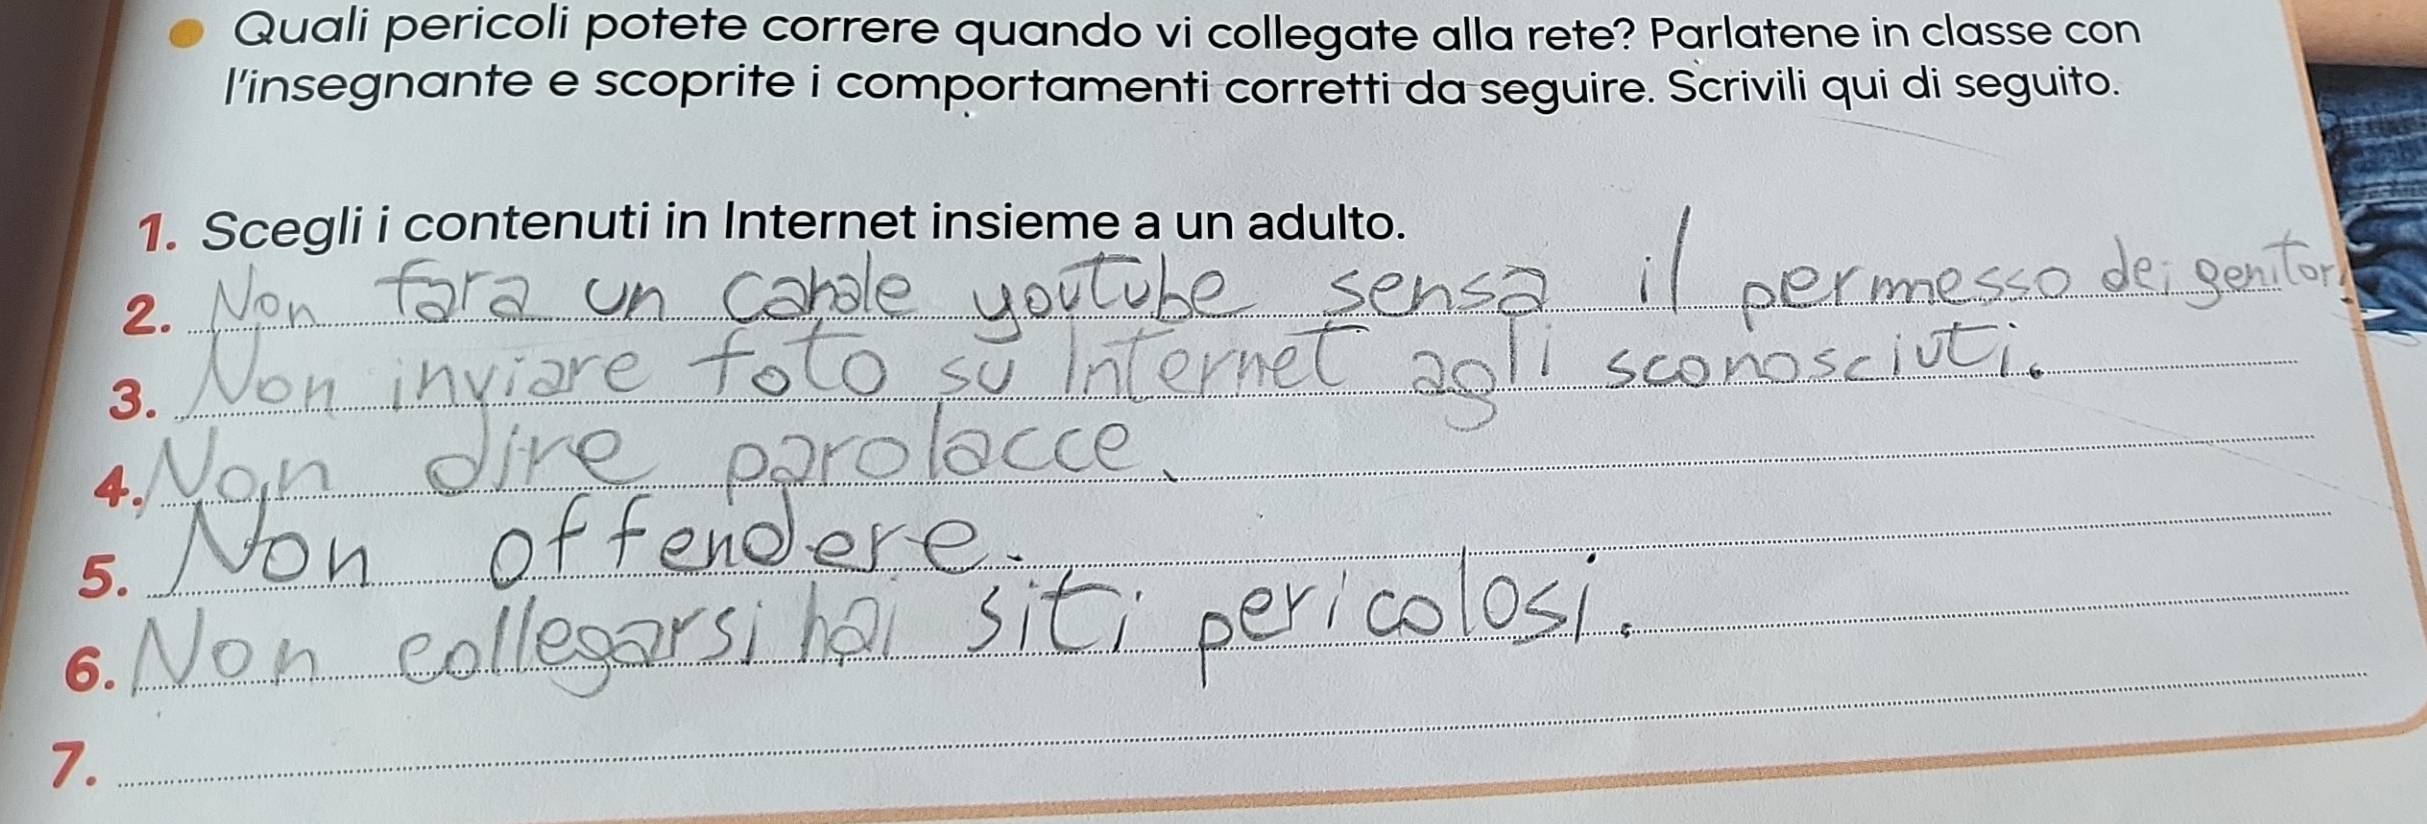 Quali pericoli potete correre quando vi collegate alla rete? Parlatene in classe con
l'insegnante e scoprite i comportamenti corretti da seguire. Scrivili qui di seguito.
1. Scegli i contenuti in Internet insieme a un adulto.
2. Non fara un canale youtube sensa il permesso dei genitori
3. Non inviare foto su Internet agli sconosciuti.
4. Non dire parolacce.
5. Non offendere.
6. Non collegarsi hai siti pericolosi.
7.